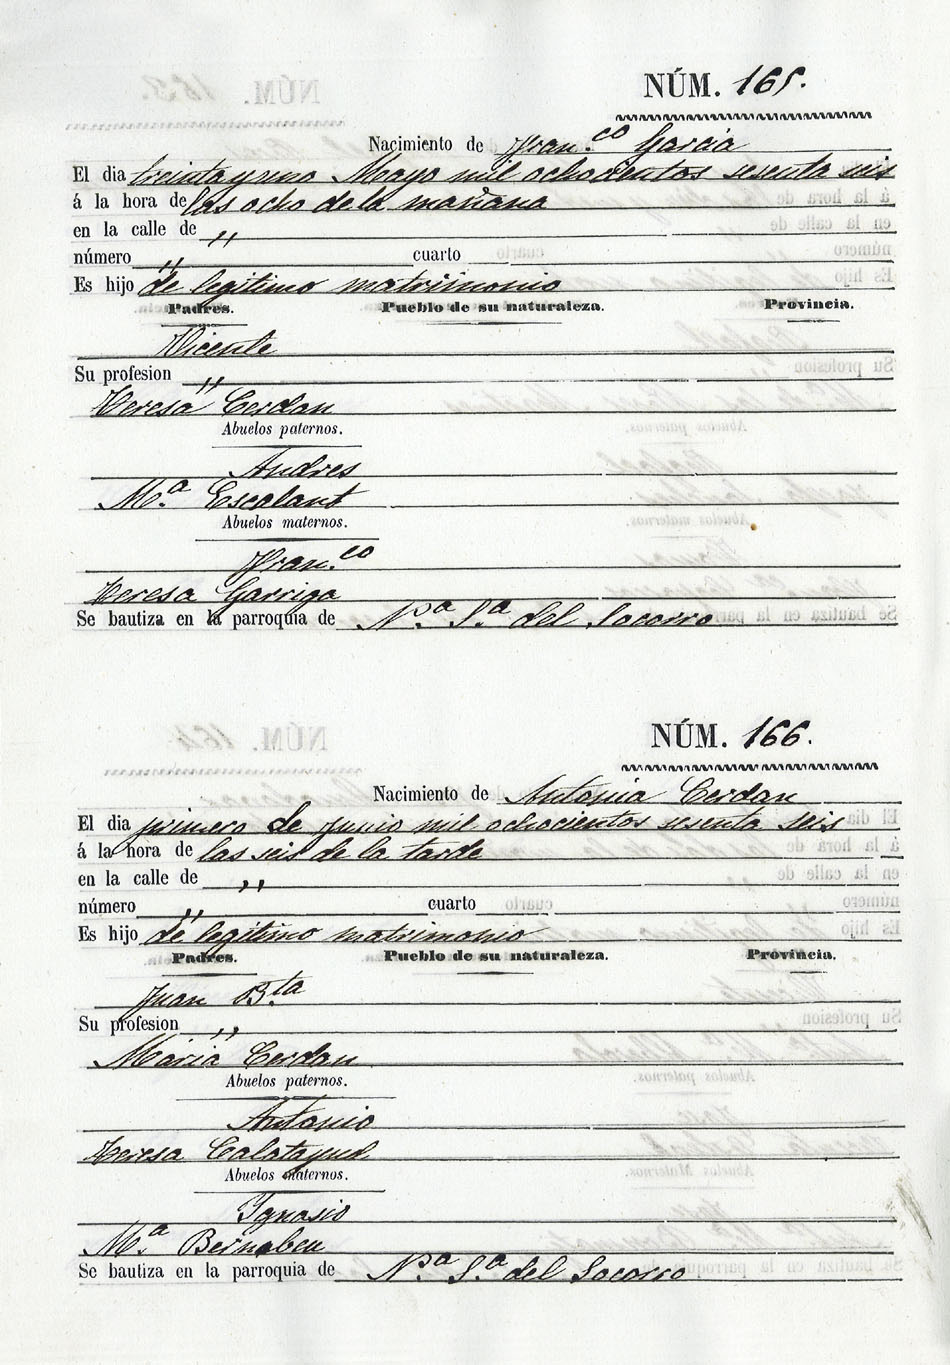 NÚM. 165.
Nacimiento de Fran.co Garcia
El dia treinta y uno Mayo mil ochocientos sesenta seis
á la hora de las ocho de la mañana
en la calle de "
número " cuarto
Es hijo de legitimo matrimonio
Padres. Pueblo de su naturaleza. Provincia.
Vicente
Su profesion "
Teresa Cerdan
Abuelos paternos.
Andres
M.a Escalant
Abuelos maternos.
Fran.co
Teresa Garriga
Se bautiza en la parroquia de N.a S.a del Socorro
NÚM. 166.
Nacimiento de Antonia Cerdan
El dia primero de Junio mil ochocientos sesenta seis
á la hora de las seis de la tarde
en la calle de "
número " cuarto
Es hijo de legitimo matrimonio
Padres. Pueblo de su naturaleza. Provincia.
Juan B.ta
Su profesion "
Maria Cerdan
Abuelos paternos.
Antonio
Teresa Calatayud
Abuelos maternos.
Ignasio
M.a Bernabeu
Se bautiza en la parroquia de N.a S.a del Socorro